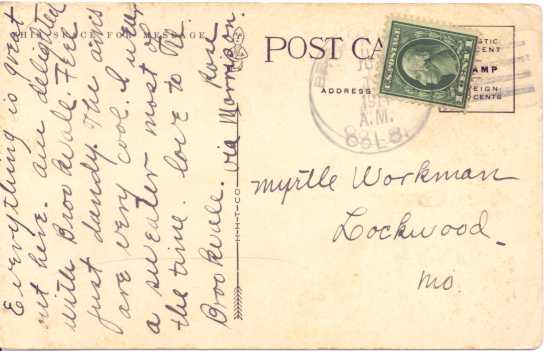 THIS SPACE FOR MESSAGE
Everything is great
out here. am delighted
with Brookvale. Feel
just dandy. The airs
are very cool. I wear
a sweater most of
the time. love to All
Rose
Brookvale. via Morrison.
POST CA
ADDRESS
A.M.
COLO.
U.S. POSTAGE
STIC
CENT
AMP
EIGN
CENTS
Myrtle Workman
Lockwood
Mo.